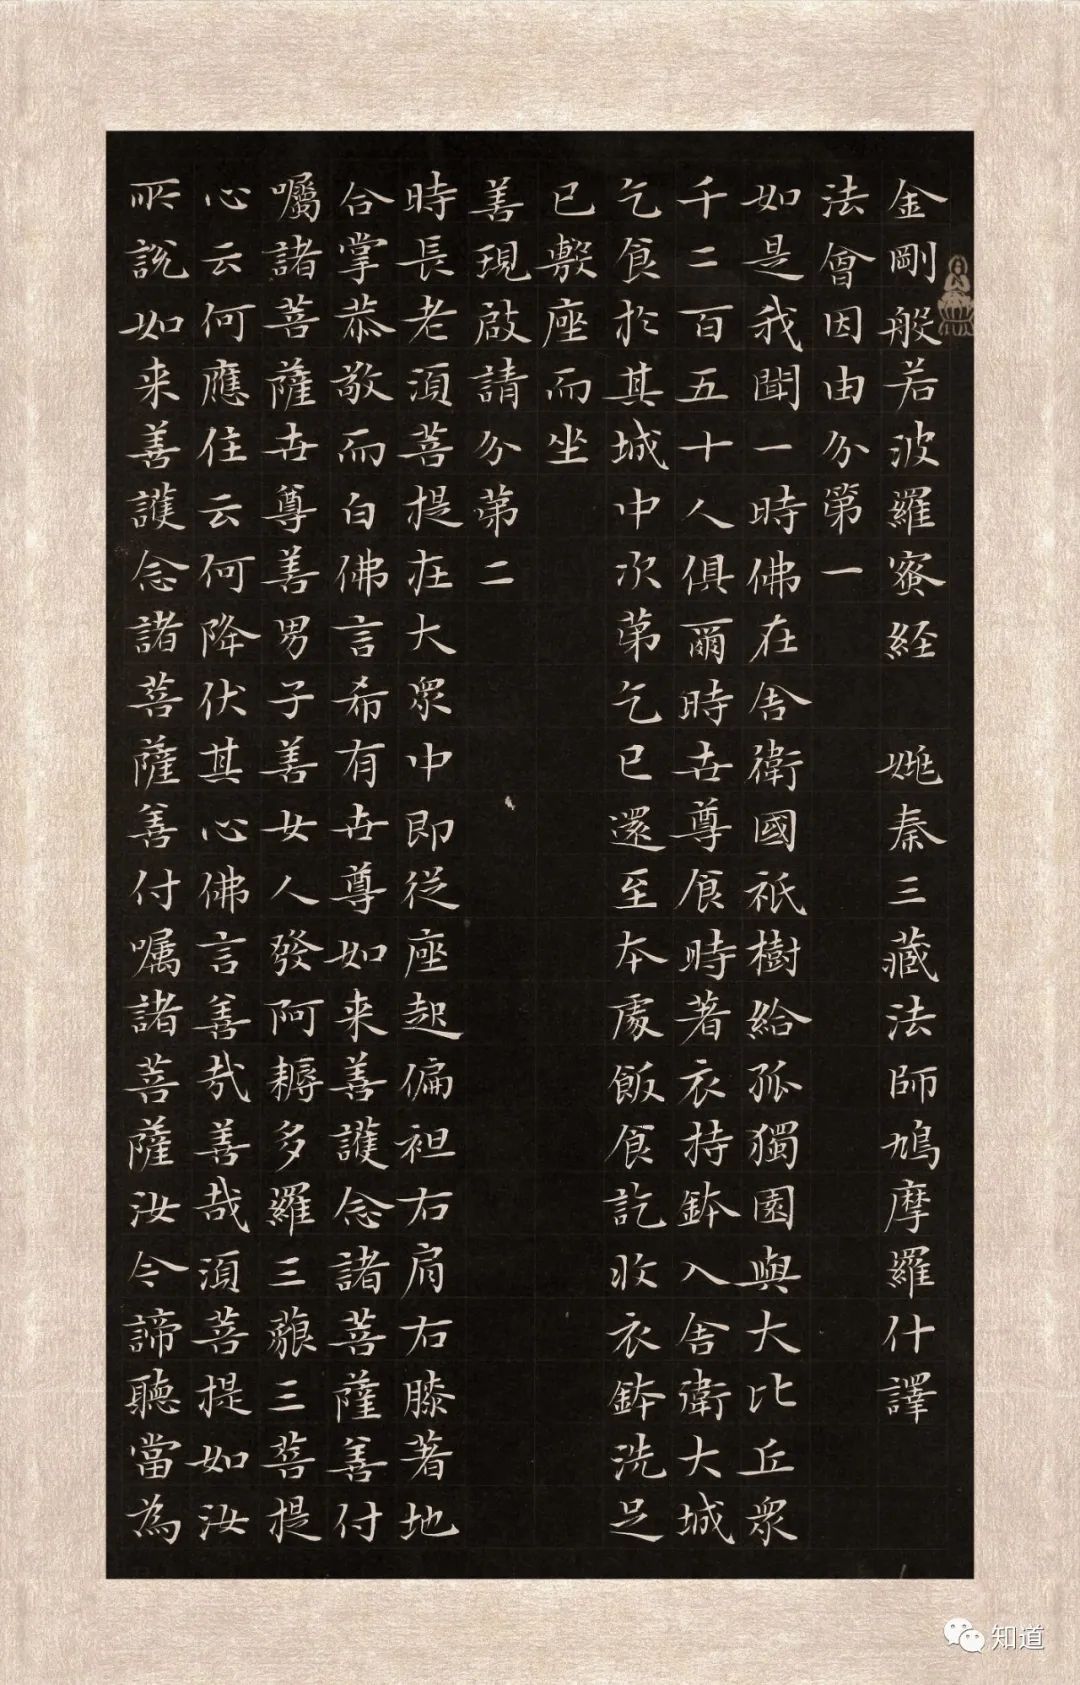 金剛般若波羅蜜経　姚秦三藏法師鳩摩羅什譯
法會因由分第一
如是我聞一時佛在舎衛國祇樹給孤獨園與大比丘衆
千二百五十人俱爾時世尊食時著衣持鉢入舎衛大城
乞食於其城中次第乞已還至本處飯食訖收衣鉢洗足
已敷座而坐
善現啟請分第二
時長老須菩提在大衆中即從座起偏袒右肩右膝著地
合掌恭敬而白佛言希有世尊如来善護念諸菩薩善付
囑諸菩薩世尊善男子善女人發阿耨多羅三藐三菩提
心云何應住云何降伏其心佛言善哉善哉須菩提如汝
所説如来善護念諸菩薩善付嘱諸菩薩汝今諦聽當為
知道